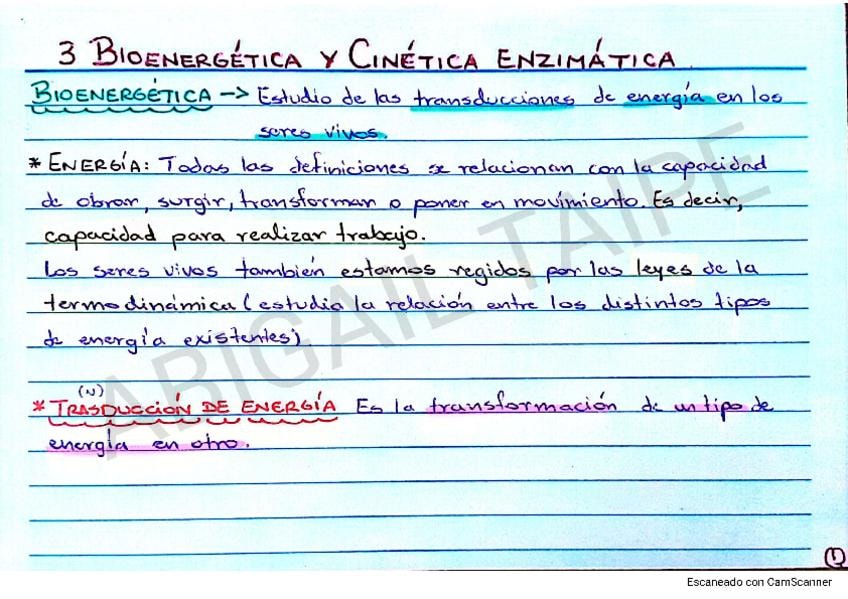 3 BIOENERGÉTICA Y CINÉTICA ENZIMÁTICA.
BIOENERGÉTICA -> Estudio de las transducciones de energía en los
seres vivos.
* ENERGÍA: Todas las definiciones se relacionan con la capacidad
de obrar, surgir, transformar o poner en movimiento. Es decir,
capacidad para realizar trabajo.
Los seres vivos también estamos regidos por las leyes de la
termodinámica (estudia la relación entre los distintos tipos
de energía existentes)
(N)
* TRASDUCCIÓN DE ENERGÍA Es la transformación de un tipo de
energía en otro.
1
ABIGAIL TAIPE
Escaneado con CamScanner